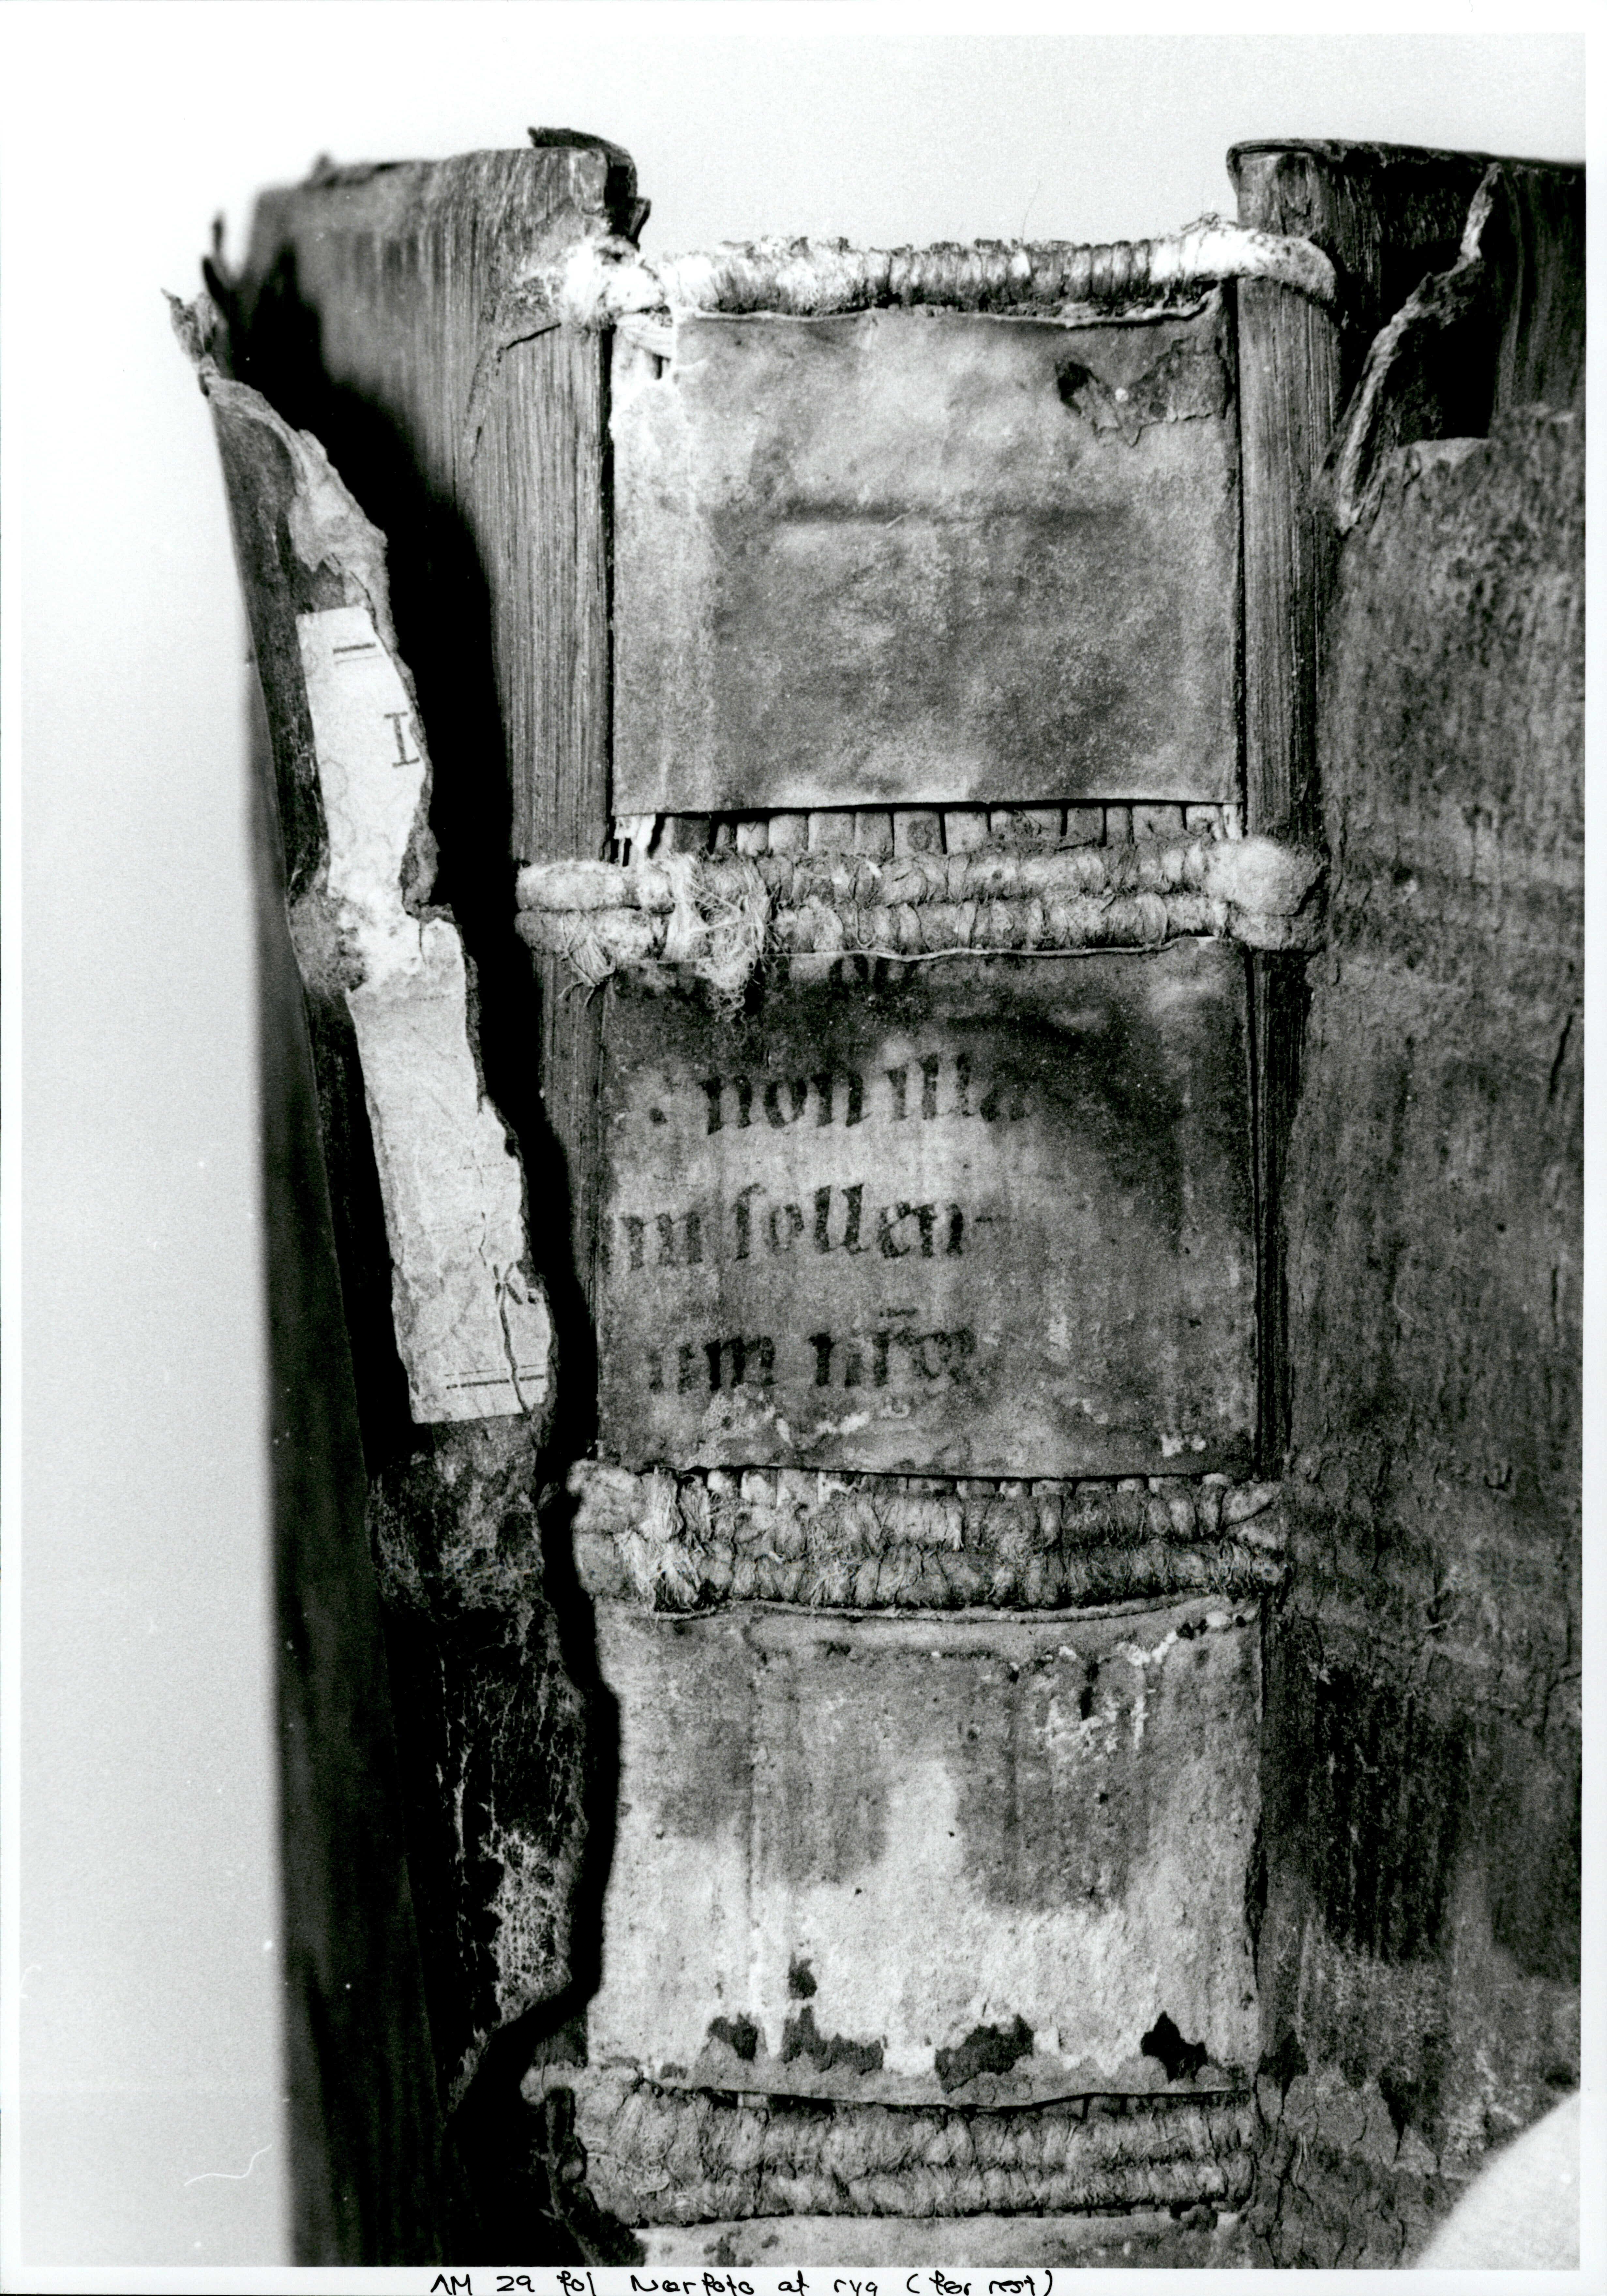 I
non illa
m sollen-
um nr̅e
AM 29 fol Nærfoto af ryg (før rest)